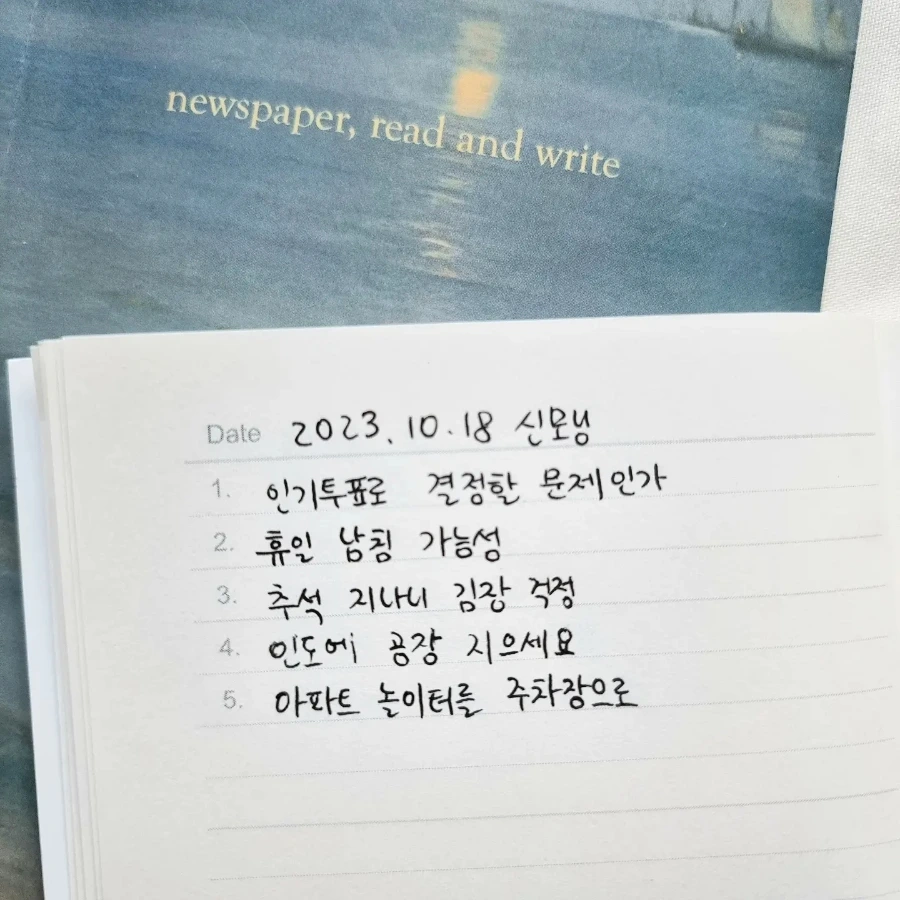 newspaper, read and write
Date 2023.10.18 신모닝
1. 인기투표로 결정할 문제인가
2. 휴일 남침 가능성
3. 추석 지나니 김장 걱정
4. 인도에 공장 지으세요
5. 아파트 놀이터를 주차장으로